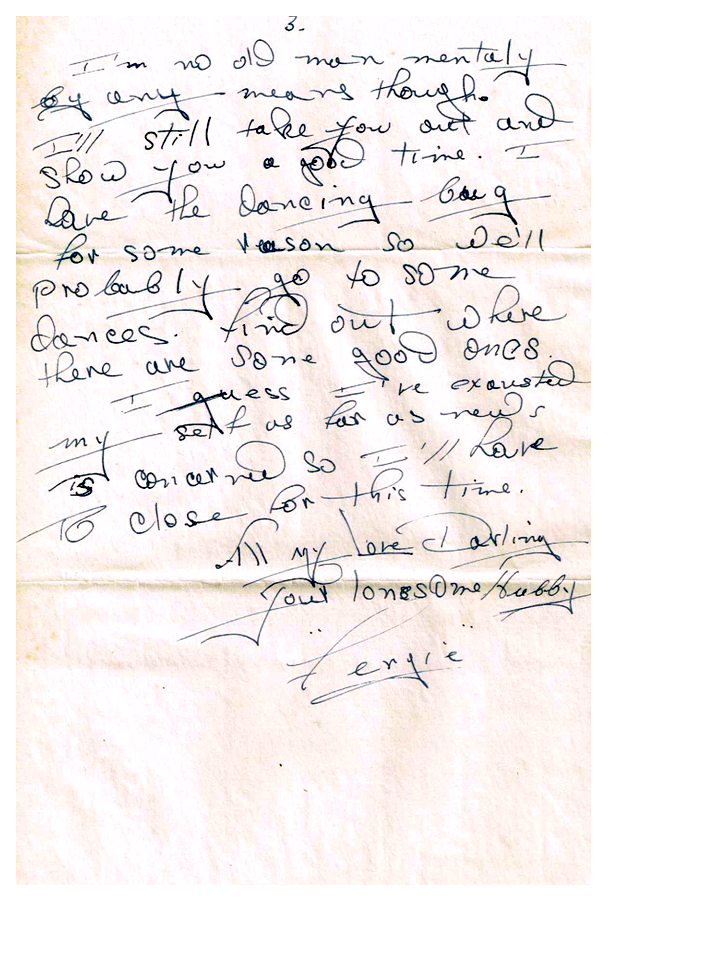 3.
I'm no old man mentaly
by any means though.
I'll still take you out and
show you a good time. I
have the dancing bug
for some reason so we'll
probably go to some
dances. Find out where
there are some good ones.
I guess I've exausted
my self as far as news
is concerned so I'll have
to close for this time.
All my love Darling
Your lonesome Hubby
"Fergie"